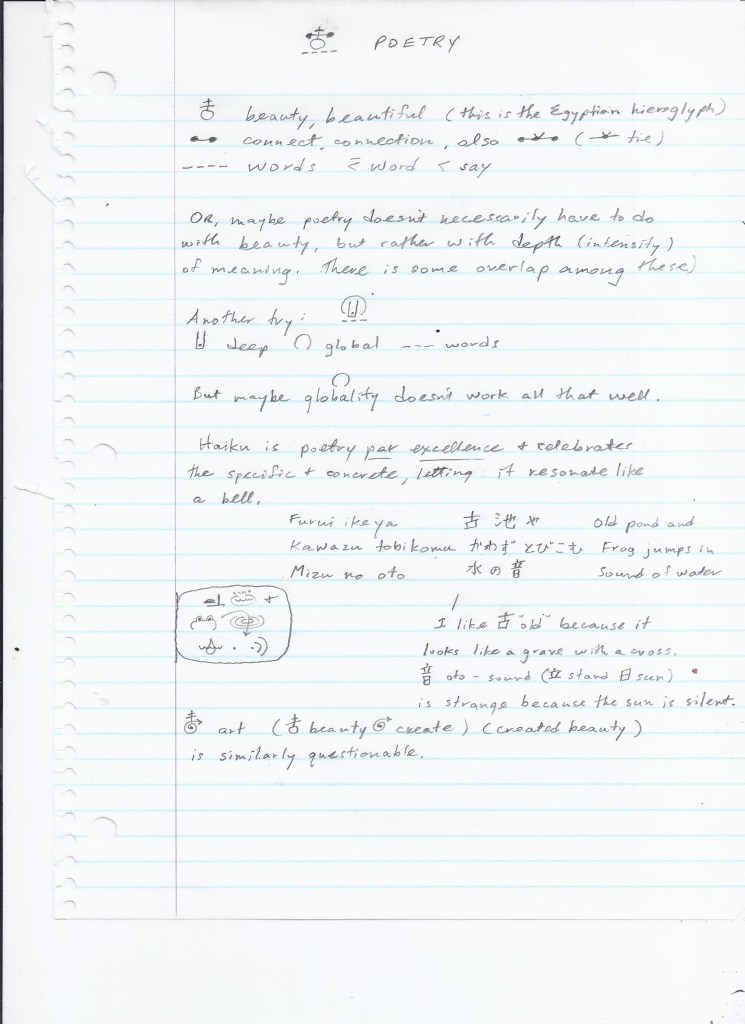 POETRY
beauty, beautiful (this is the Egyptian hieroglyph)
connect, connection, also ( tie)
---- words = word < say
OR, maybe poetry doesn't necessarily have to do
with beauty, but rather with depth (intensity)
of meaning. There is some overlap among these)
Another try:
deep global --- words
But maybe globality doesn't work all that well.
Haiku is poetry par excellence + celebrates
the specific + concrete, letting it resonate like
a bell.
Furui ike ya 古池や Old pond and
Kawazu tobikomu かわずとびこむ Frog jumps in
Mizu no oto 水の音 Sound of water
I like 古 "old" because it
looks like a grave with a cross.
音 oto - sound (立 stand 日 sun)
is strange because the sun is silent.
art ( beauty create) (created beauty)
is similarly questionable.